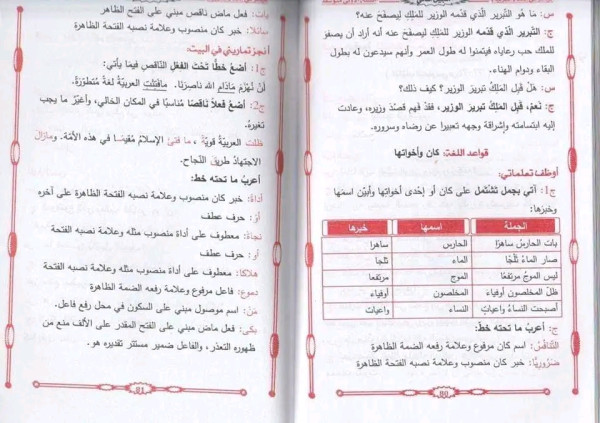 س: ما هُو التَّبرير الَّذي قدّمه الوزير للملِكِ ليصفَحَ عنه؟
ج: التَّبرير الّذي قدّمه الوزير للملِكِ ليَصفحَ عنه أنه أراد أن يصفوَ
للملك حب رعاياه فيتمنوا له طول العمر وأنهم سيدعون له بطول
البقاء ودوام الهناء.
س: هَلْ قَبِلَ المَلِكُ تبريرَ الوَزير؟ كيف ذلك؟
ج: نَعمْ، قَبِلَ المَلِكُ تَبريرَ الوَزير، فقدْ فهم قصْدَ وزيره، وعادت
إليه ابتسامته وإشراقة وجهه تعبيرا عن رضاه وسروره.
قواعد اللغة: كان وأخواتها
أوظف تعلماتي:
ج1: آتي بجمل تشتمل على كان أو إحدى أخواتها وأبيّن اسمَها
وخبرَها:
الجملة اسمها خبرها
بات الحارسُ ساهرًا الحارس ساهرا
صار الماءُ ثلْجًا الماء ثلجا
ليس الموجُ مرتفعًا الموج مرتفعا
ظلّ المخلصون أوفياءَ المخلصون أوفياء
أصبحت النساءُ واعياتٍ النساء واعيات
ج: أعربُ ما تحته خط:
التَّنافُسُ: اسم كان مرفوع وعلامة رفعه الضمة الظاهرة
ضَروريًّا: خبر كان منصوب وعلامة نصبه الفتحة الظاهرة
بات: فعل ماض ناقص مبني على الفتح الظاهرة
سائلا: خبر كان منصوب وعلامة نصبه الفتحة الظاهرة
أنجز تماريني في البيت:
ج1: أضعُ خطًّا تَحْتَ الفِعْلِ النّاقص فيما يأتي:
لَنْ نُهْزَمَ مَادَام الله ناصِرَنا. مافَتِئَت العربيّة لغةً مُتطوِّرَةً.
ج2: أضع فعلاً ناقصًا مُناسبًا في المكان الخالي، وأغيّرُ ما يجب
تغيرهُ.
ظلت العربيّة قويّةً ، ما فتئ الإسلامُ مُقيمًا في هذه الأمّة. ومازال
الاجتهادُ طريقَ النّجاح.
أعربُ ما تحته خط:
أداة: خبر كان منصوب وعلامة نصبه الفتحة الظاهرة على آخره
أوْ: حرف عطف
نجاةً: معطوف على أداة منصوب مثله وعلامة نصبه الفتحة الظاهرة
أو: حرف عطف
هلاكا: معطوف على أداة منصوب مثله وعلامة نصبه الفتحة الظاهرة
دموع: فاعل مرفوع وعلامة رفعه الضمة الظاهرة
مَنْ: اسم موصول مبني على السكون في محل رفع فاعل.
بكى: فعل ماض مبني على الفتح المقدر على الألف منع من
ظهوره التعذر، والفاعل ضمير مستتر تقديره هو.